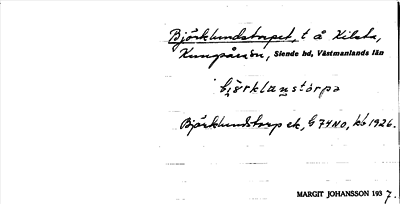 Björklundstorpet, t å Kilsta,
Kungsåren, Siende hd, Västmanlands län
björklaṇstɔrpə
Björklundstorp ek, G 74 NO, kb 1926.
MARGIT JOHANSSON 1937.